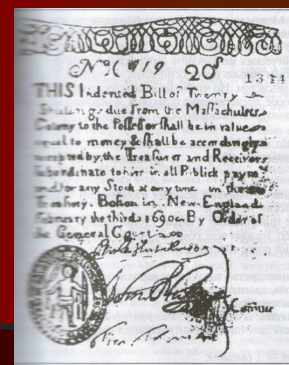 No (719 20s 1314
THIS Indented Bill of Twenty
Shillings due from the Massachusets
Colony to the Possessor shall be in value
equal to money & shall be accordingly
accepted by the Treasurer and Receivers
subordinate to him in all Publick paym.ts
and for any Stock at any time in the
Treasury. Boston in New England
February the third 1690 By Order of
the General Court
Elisha Hutchinson
Comitee